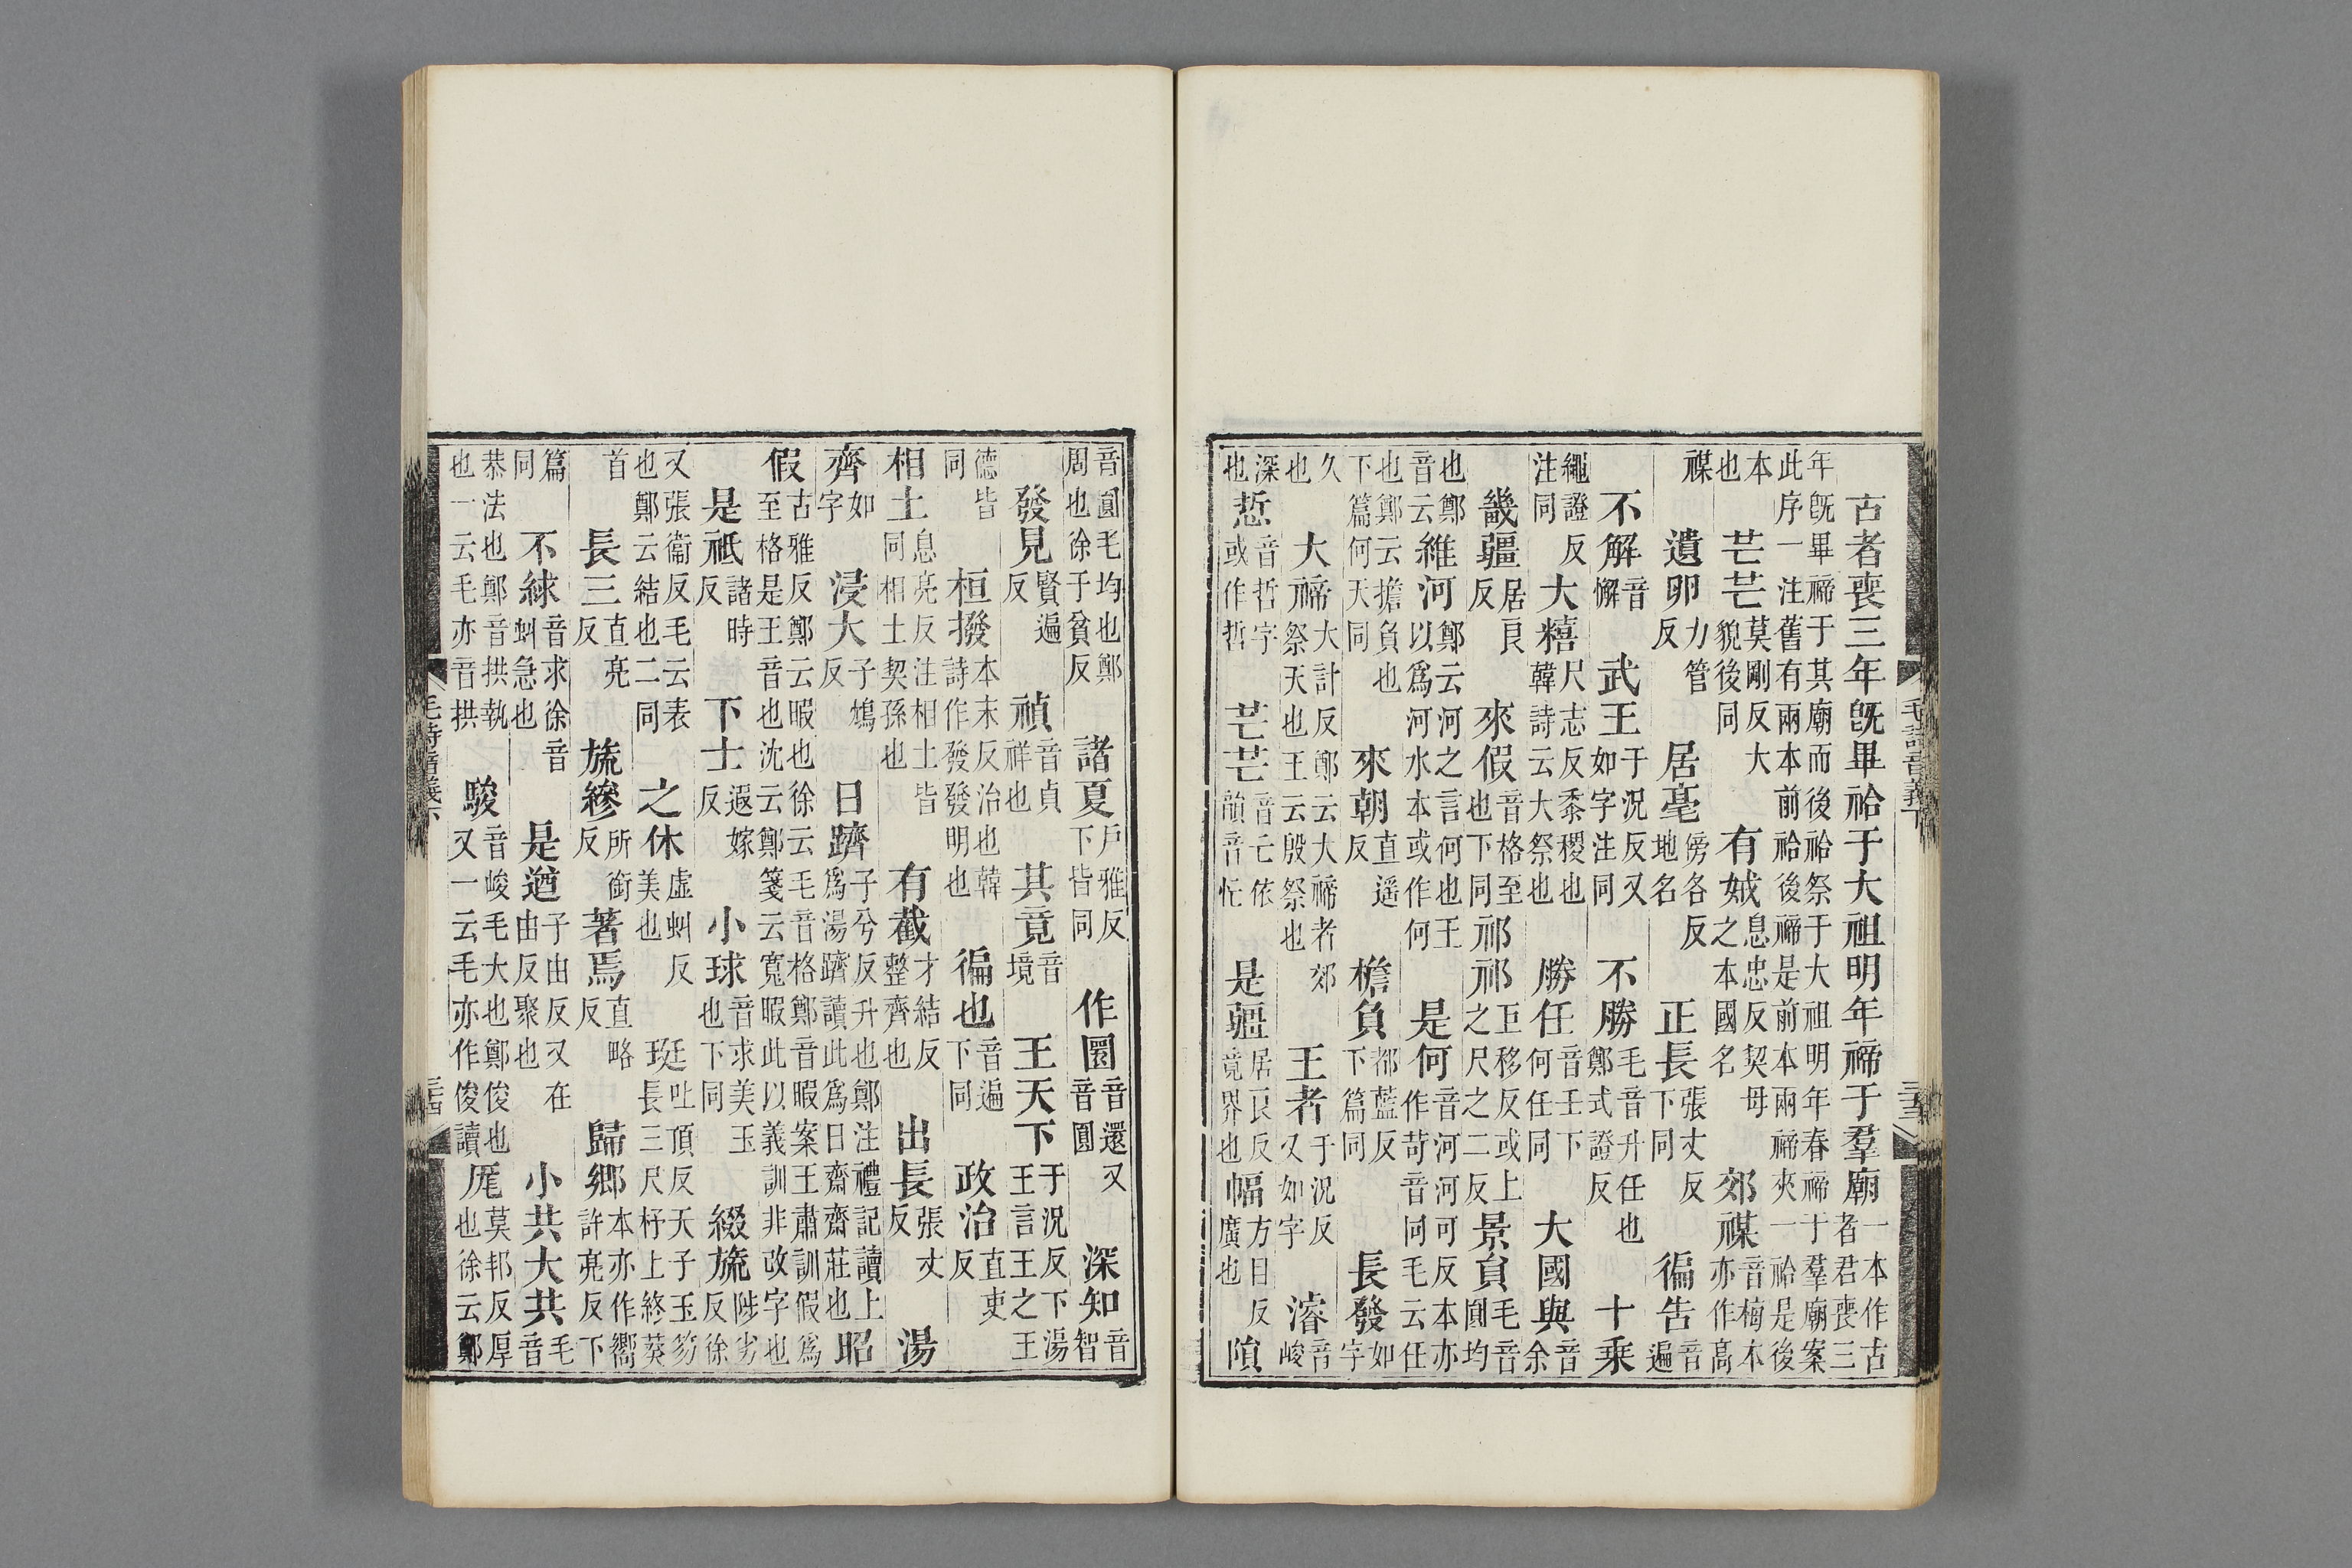 古者喪三年既畢祫于大祖明年禘于羣廟一本作古者君喪三
年既畢禘于其廟而後祫祭于大祖明年春禘于羣廟案此序一注舊有兩本前祫後禘是前本兩禘夾一祫是後
本也芒芒莫剛反大貌後同有娀息忠反契母之本國名郊禖音梅本亦作高
禖遺卵力管反居亳傍各反地名正長張丈反下同徧告音遍
不解音懈武王于況反又如字注同不勝毛音升任也鄭式證反十乘
繩證反注同大糦尺志反黍稷也韓詩云大祭也勝任音壬下何任同大國與音余
畿疆居良反來假音格至也下同祁祁巨移反或上之尺之二反景員毛音圓均
也鄭音云維河鄭云河之言何也王以爲河水本或作何是何音河河可反本亦作苛音同毛云任
也鄭云擔負也下篇何天同來朝直遥反檐負都藍反下篇同長發如字
久也大禘大計反鄭云大禘者郊祭天也王云殷祭也王者于況反又如字濬音峻
深也悊音哲字或作哲芒芒音亡依韻音忙是疆居良反竟界也幅方目反廣也隕
毛詩音義下
音圓毛均也鄭周也徐于貧反諸夏戶雅反下皆同作圜音還又音圓深知音智
發見賢遍反禎音貞祥也其竟音境王天下于況反下湯王言王之王
德皆同桓撥本末反治也韓詩作發發明也徧也音遍下同政治直吏反
相土息亮反注相土皆同相土契孫也有截才結反整齊也出長張丈反湯
齊如字浸大子鴆反日躋子兮反升也鄭注禮記讀上爲湯躋讀此爲日齋齋莊也昭
假古雅反鄭云暇也徐云毛音格鄭音暇案王肅訓假爲至格是王音也沈云鄭箋云寬暇此以義訓非改字也
是祗諸時反下士遐嫁反小球音求美玉也下同綴旒陟劣反徐
又張衞反毛云表也鄭云結也二同之休虛虯反美也珽吐頂反天子玉笏長三尺杼上終葵
首長三直亮反旒縿所銜反著焉直略反歸鄉本亦作嚮許亮反下
篇同不絿音求徐音虯急也是遒子由反又在由反聚也小共大共毛音
恭法也鄭音拱執也一云毛亦音拱駿音峻毛大也鄭俊也又一云毛亦作俊讀厖莫邦反厚也徐云鄭
毛詩音義下